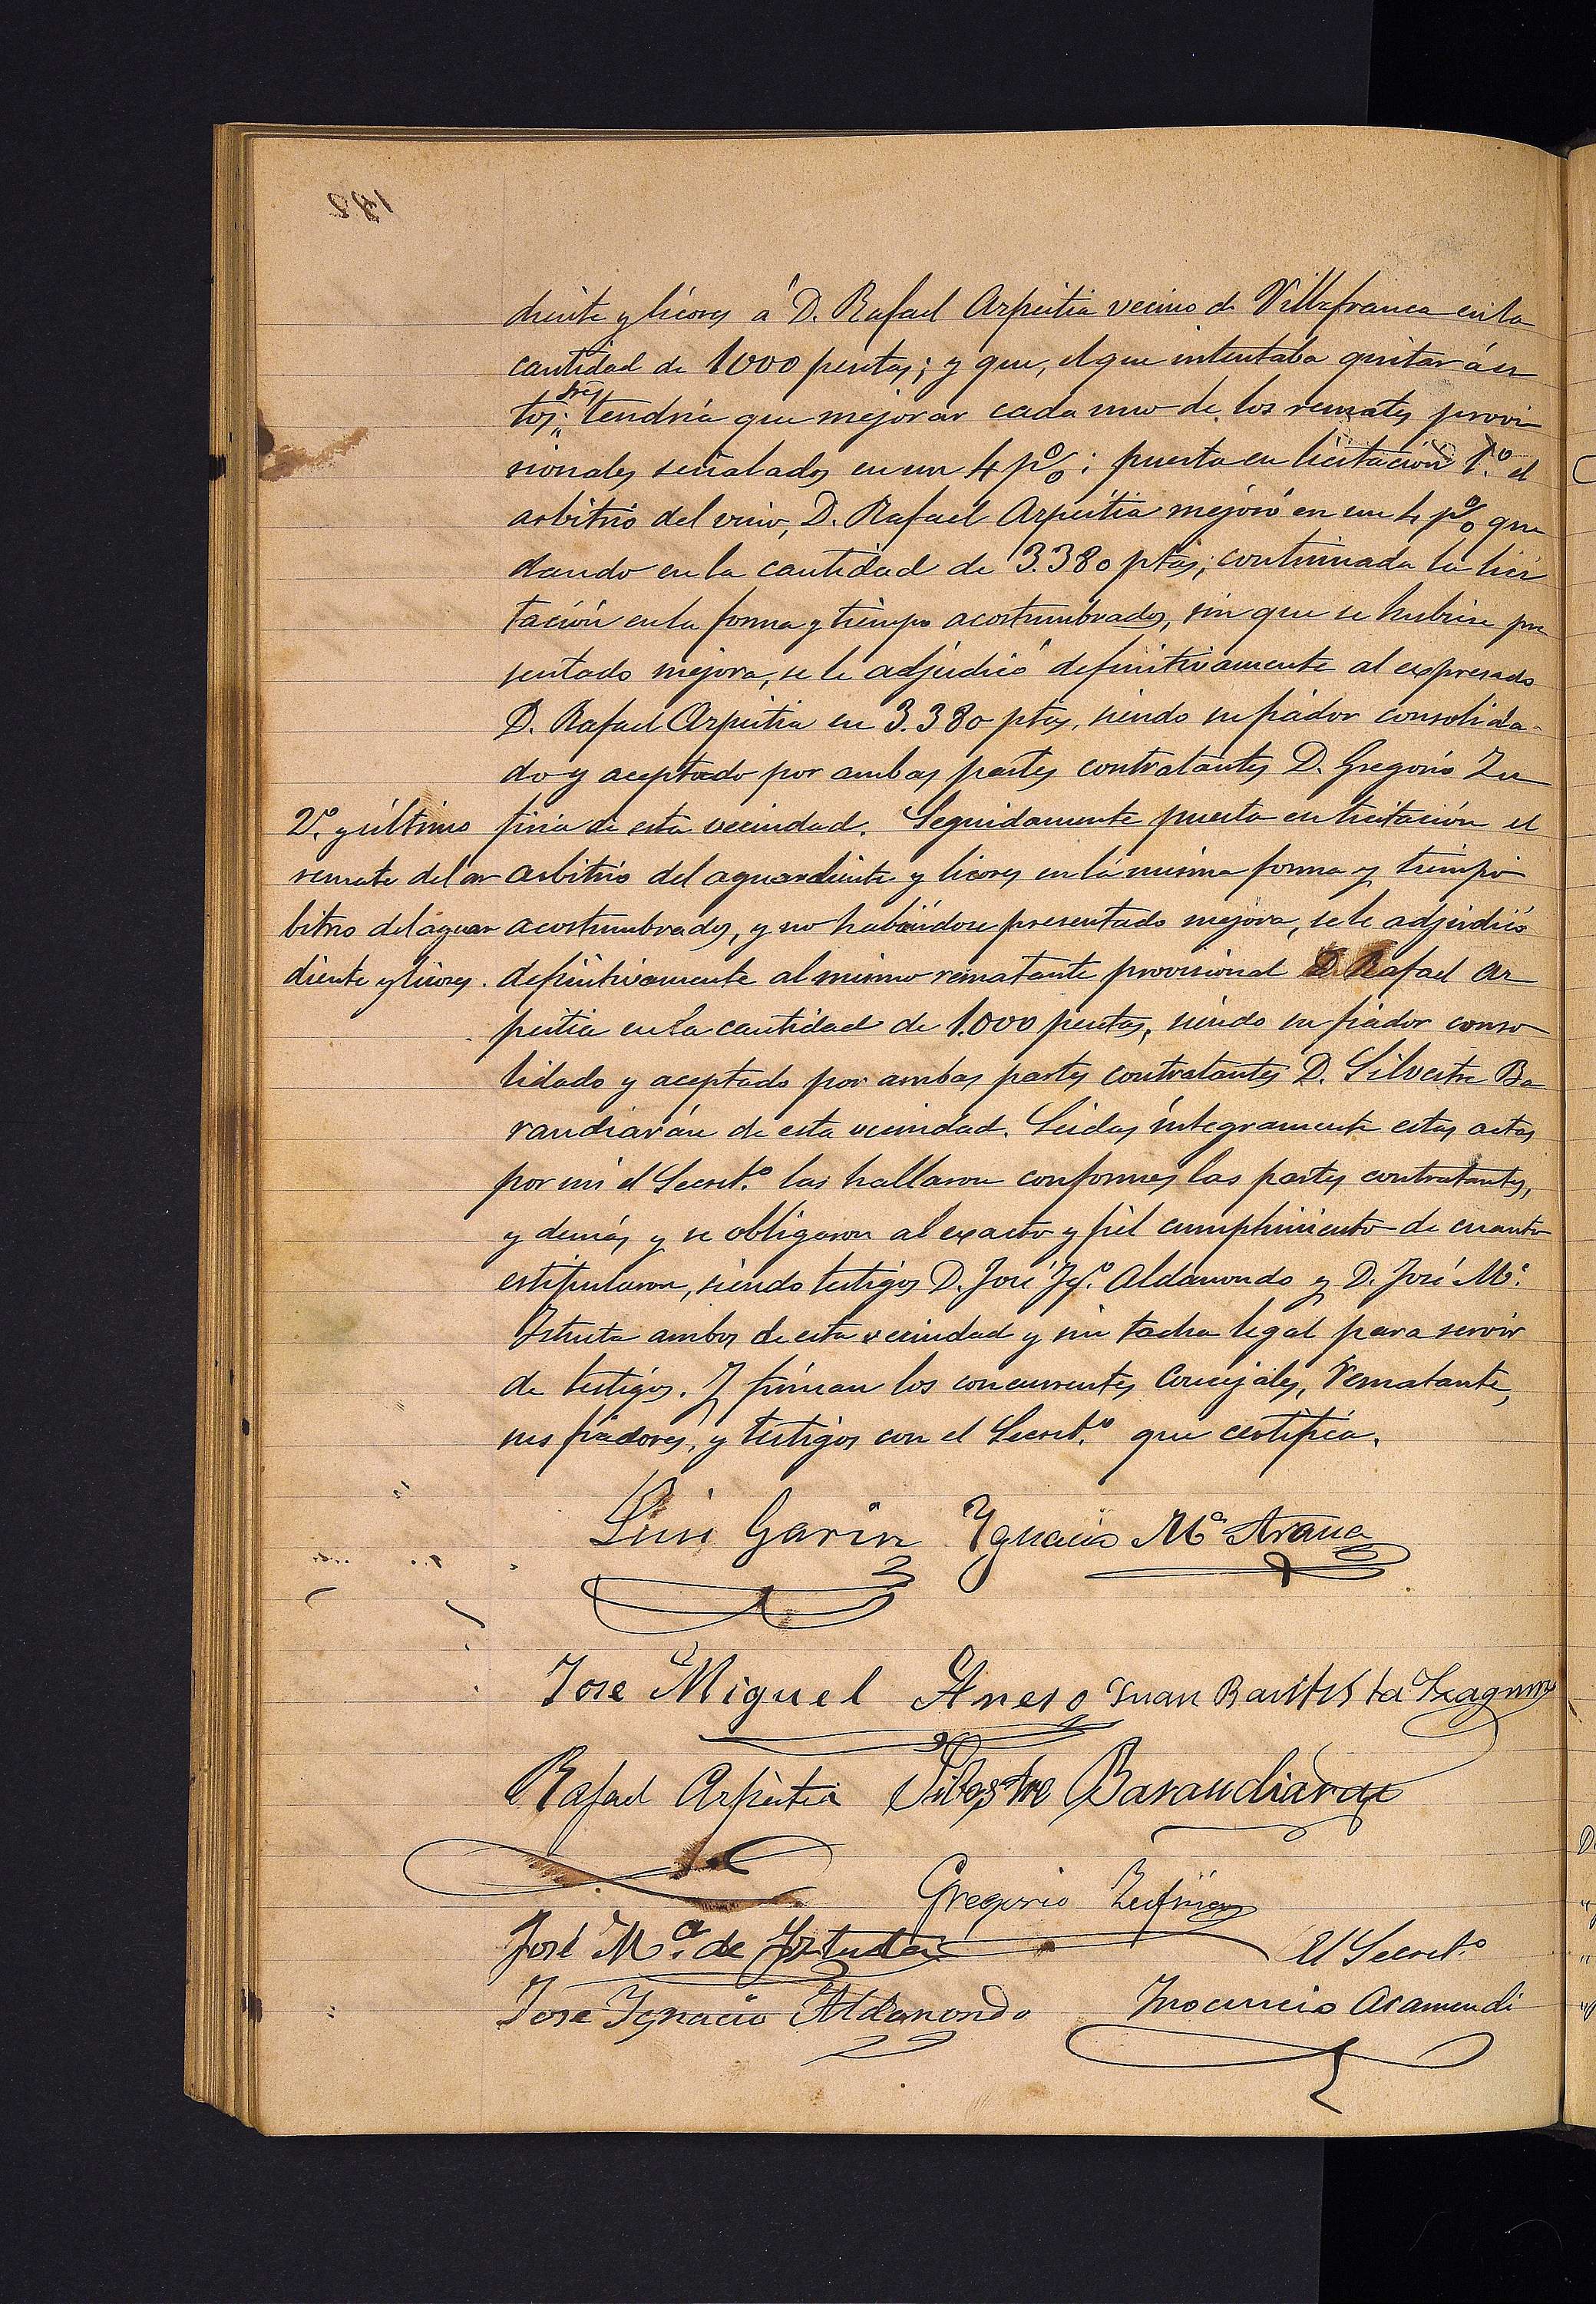 diente y licores á D. Rafael Arpeitia vecino de Villafranca en la
cantidad de 1000 pesetas; y que, el que intentaba quitar á és
tos; tendría que mejorar cada uno de los remates provi
sionales señalados en un 4 p%; puesta en licitación 1.º el
arbitrio del vino, D. Rafael Arpeitia mejoró en un 4 p% que
dando en la cantidad de 3.380 ptas; continuada la lici
tación en la forma y tiempo acostumbrados, sin que se hubiese pre
sentado mejora, se le adjudicó definitivamente al expresado
D. Rafael Arpeitia en 3.380 ptas, siendo su fiador consolida-
do y aceptado por ambas partes contratantes D. Gregorio Zu
2.º y último
remate del ar
bitrio del aguar
diente y licores.
firia de esta vecindad. Seguidamente puesta en licitación el
arbitrio del aguardiente y licores en la misma forma y tiempo
acostumbrados, y no habiéndose presentado mejora, se le adjudicó
definitivamente al mismo rematante provisional D. Rafael Ar
peitia en la cantidad de 1.000 pesetas, siendo su fiador conso
lidado y aceptado por ambas partes contratantes D. Silvestre Ba
randiarán de esta vecindad. Leidas íntegramente estas actas
por mi el Secret.º las hallaron conformes las partes contratantes,
y demás y se obligaron al exacto y fiel cumplimiento de cuanto
estipularon, siendo testigos D. José Ygº. Aldamondo y D. José Mª.
Ystueta ambos de esta vecindad y sin tacha legal para servir
de testigos. Y firman los concurrentes Concejales, Rematante,
sus fiadores, y testigos con el Secret.º que certifica.
Luis Garin Ygnacio Mª Arana
Jose Miguel Juan Bautista
Rafael Arpeitia Silbestre Barandiaran
Gregorio Zufiria
José Mª. de Yztueta El Secret.º
Jose Ygnacio Aldamondo Inocencio Asamendi